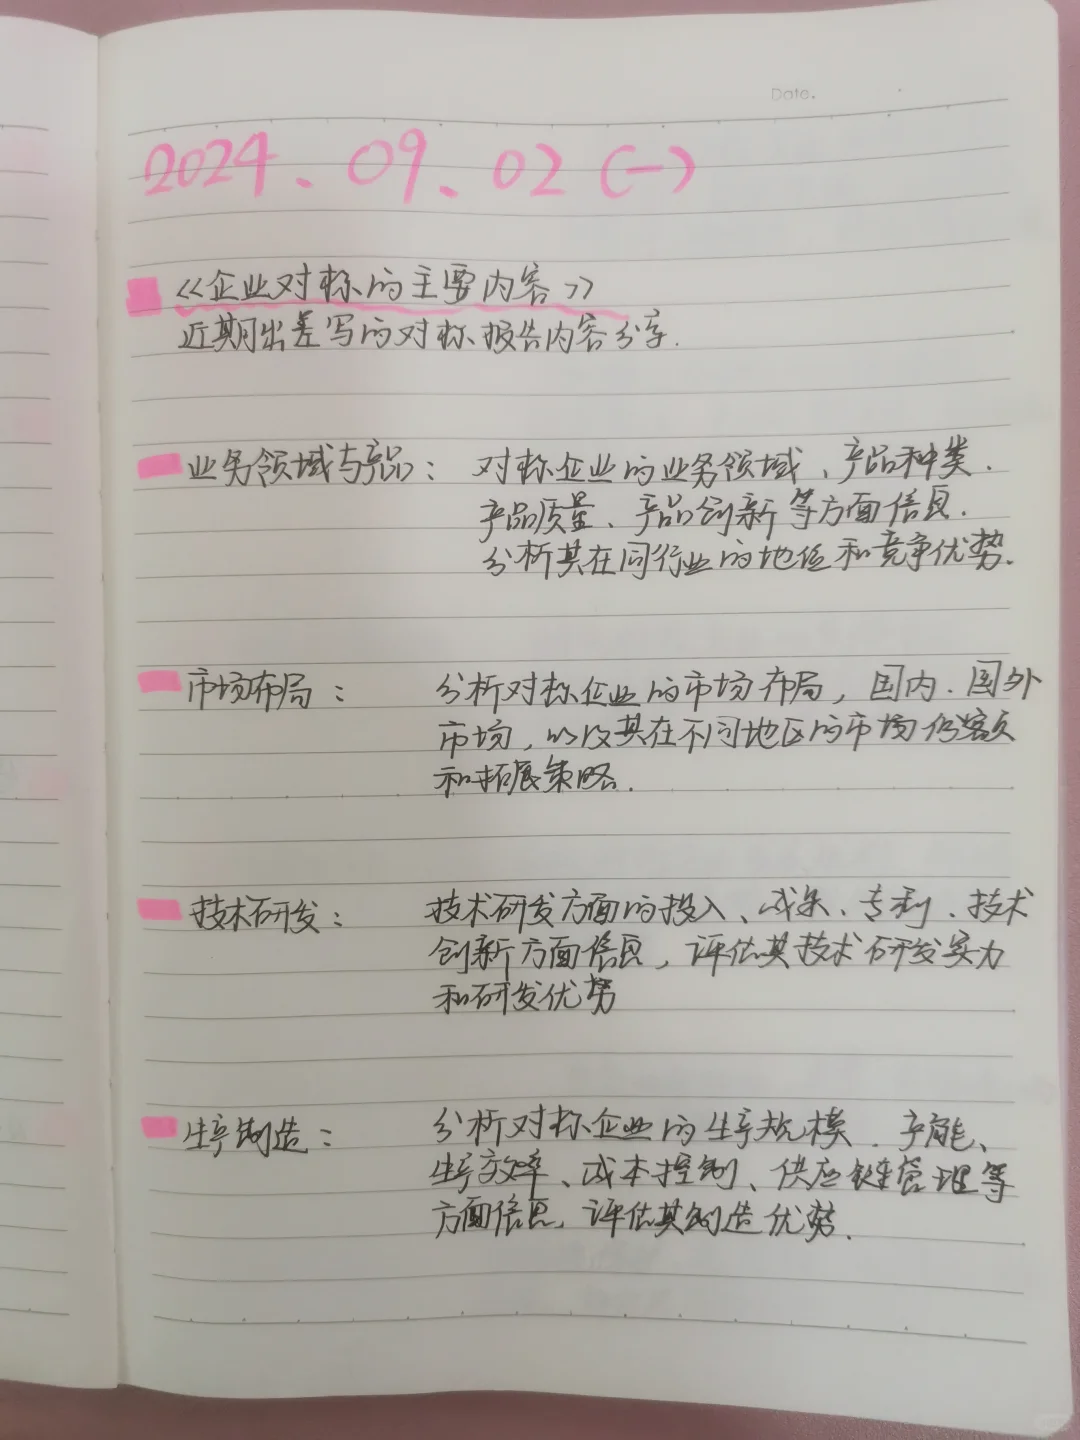 Date.
2024.09.02(一)
《企业对标的主要内容》
近期出差写的对标报告内容分享.
业务领域与产品: 对标企业的业务领域、产品种类.
产品质量、产品创新等方面信息.
分析其在同行业的地位和竞争优势.
市场布局: 分析对标企业的市场布局, 国内.国外
市场, 以及其在不同地区的市场份额
和拓展策略.
技术研发: 技术研发方面的投入、成果、专利、技术
创新方面信息, 评估其技术研发实力
和研发优势
生产制造: 分析对标企业的生产规模.产能、
生产效率、成本控制、供应链管理等
方面信息, 评估其制造优势.